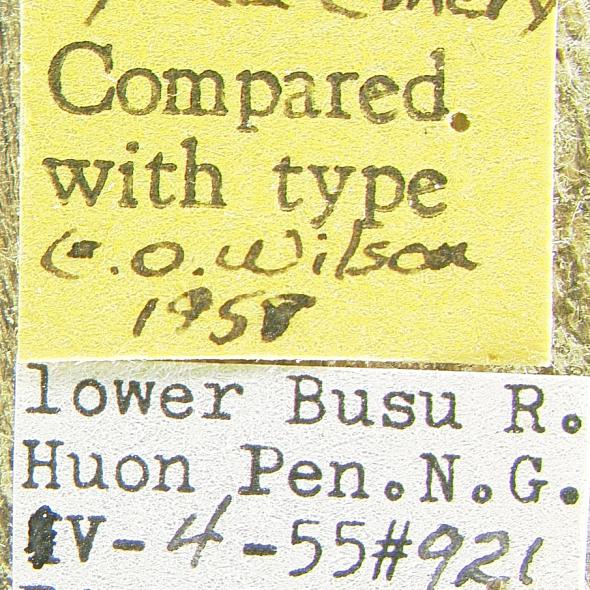 Emery
Compared.
with type
E.O. Wilson
1958
lower Busu R.
Huon Pen.N.G.
V-4-55#921